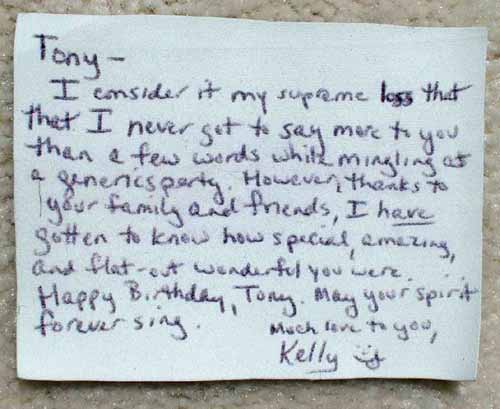 Tony -
I consider it my supreme loss that
that I never got to say more to you
than a few words while mingling at
a generics party. However, thanks to
your family and friends, I have
gotten to know how special, amazing,
and flat-out wonderful you were.
Happy Birthday, Tony. May your spirit
forever sing.
Much love to you,
Kelly